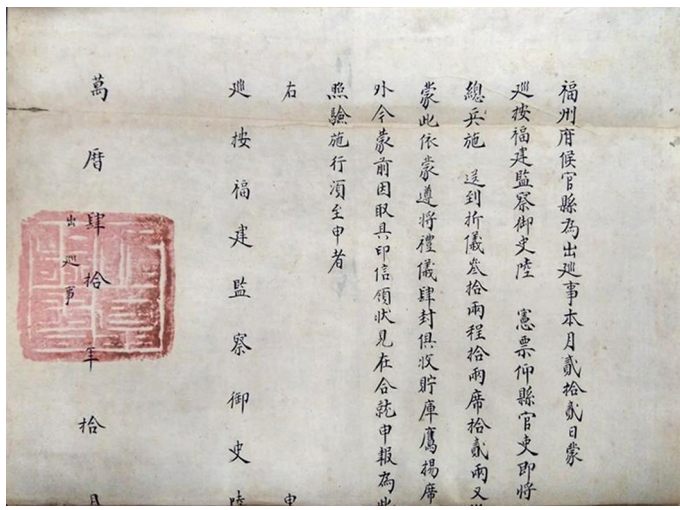 福州府候官縣為出廵事本月貳拾貳日蒙
廵按福建監察御史陸 憲票仰縣官吏即將
總兵施 送到折儀叁拾兩程拾兩席拾貳兩又
蒙此依蒙遵將禮儀肆封俱收貯庫鷹揚席
外今蒙前因取具印信領狀見在合就申報為此
照驗施行須至申者
右 申
廵按福建監察御史陸
萬曆肆拾年拾月
出廵事